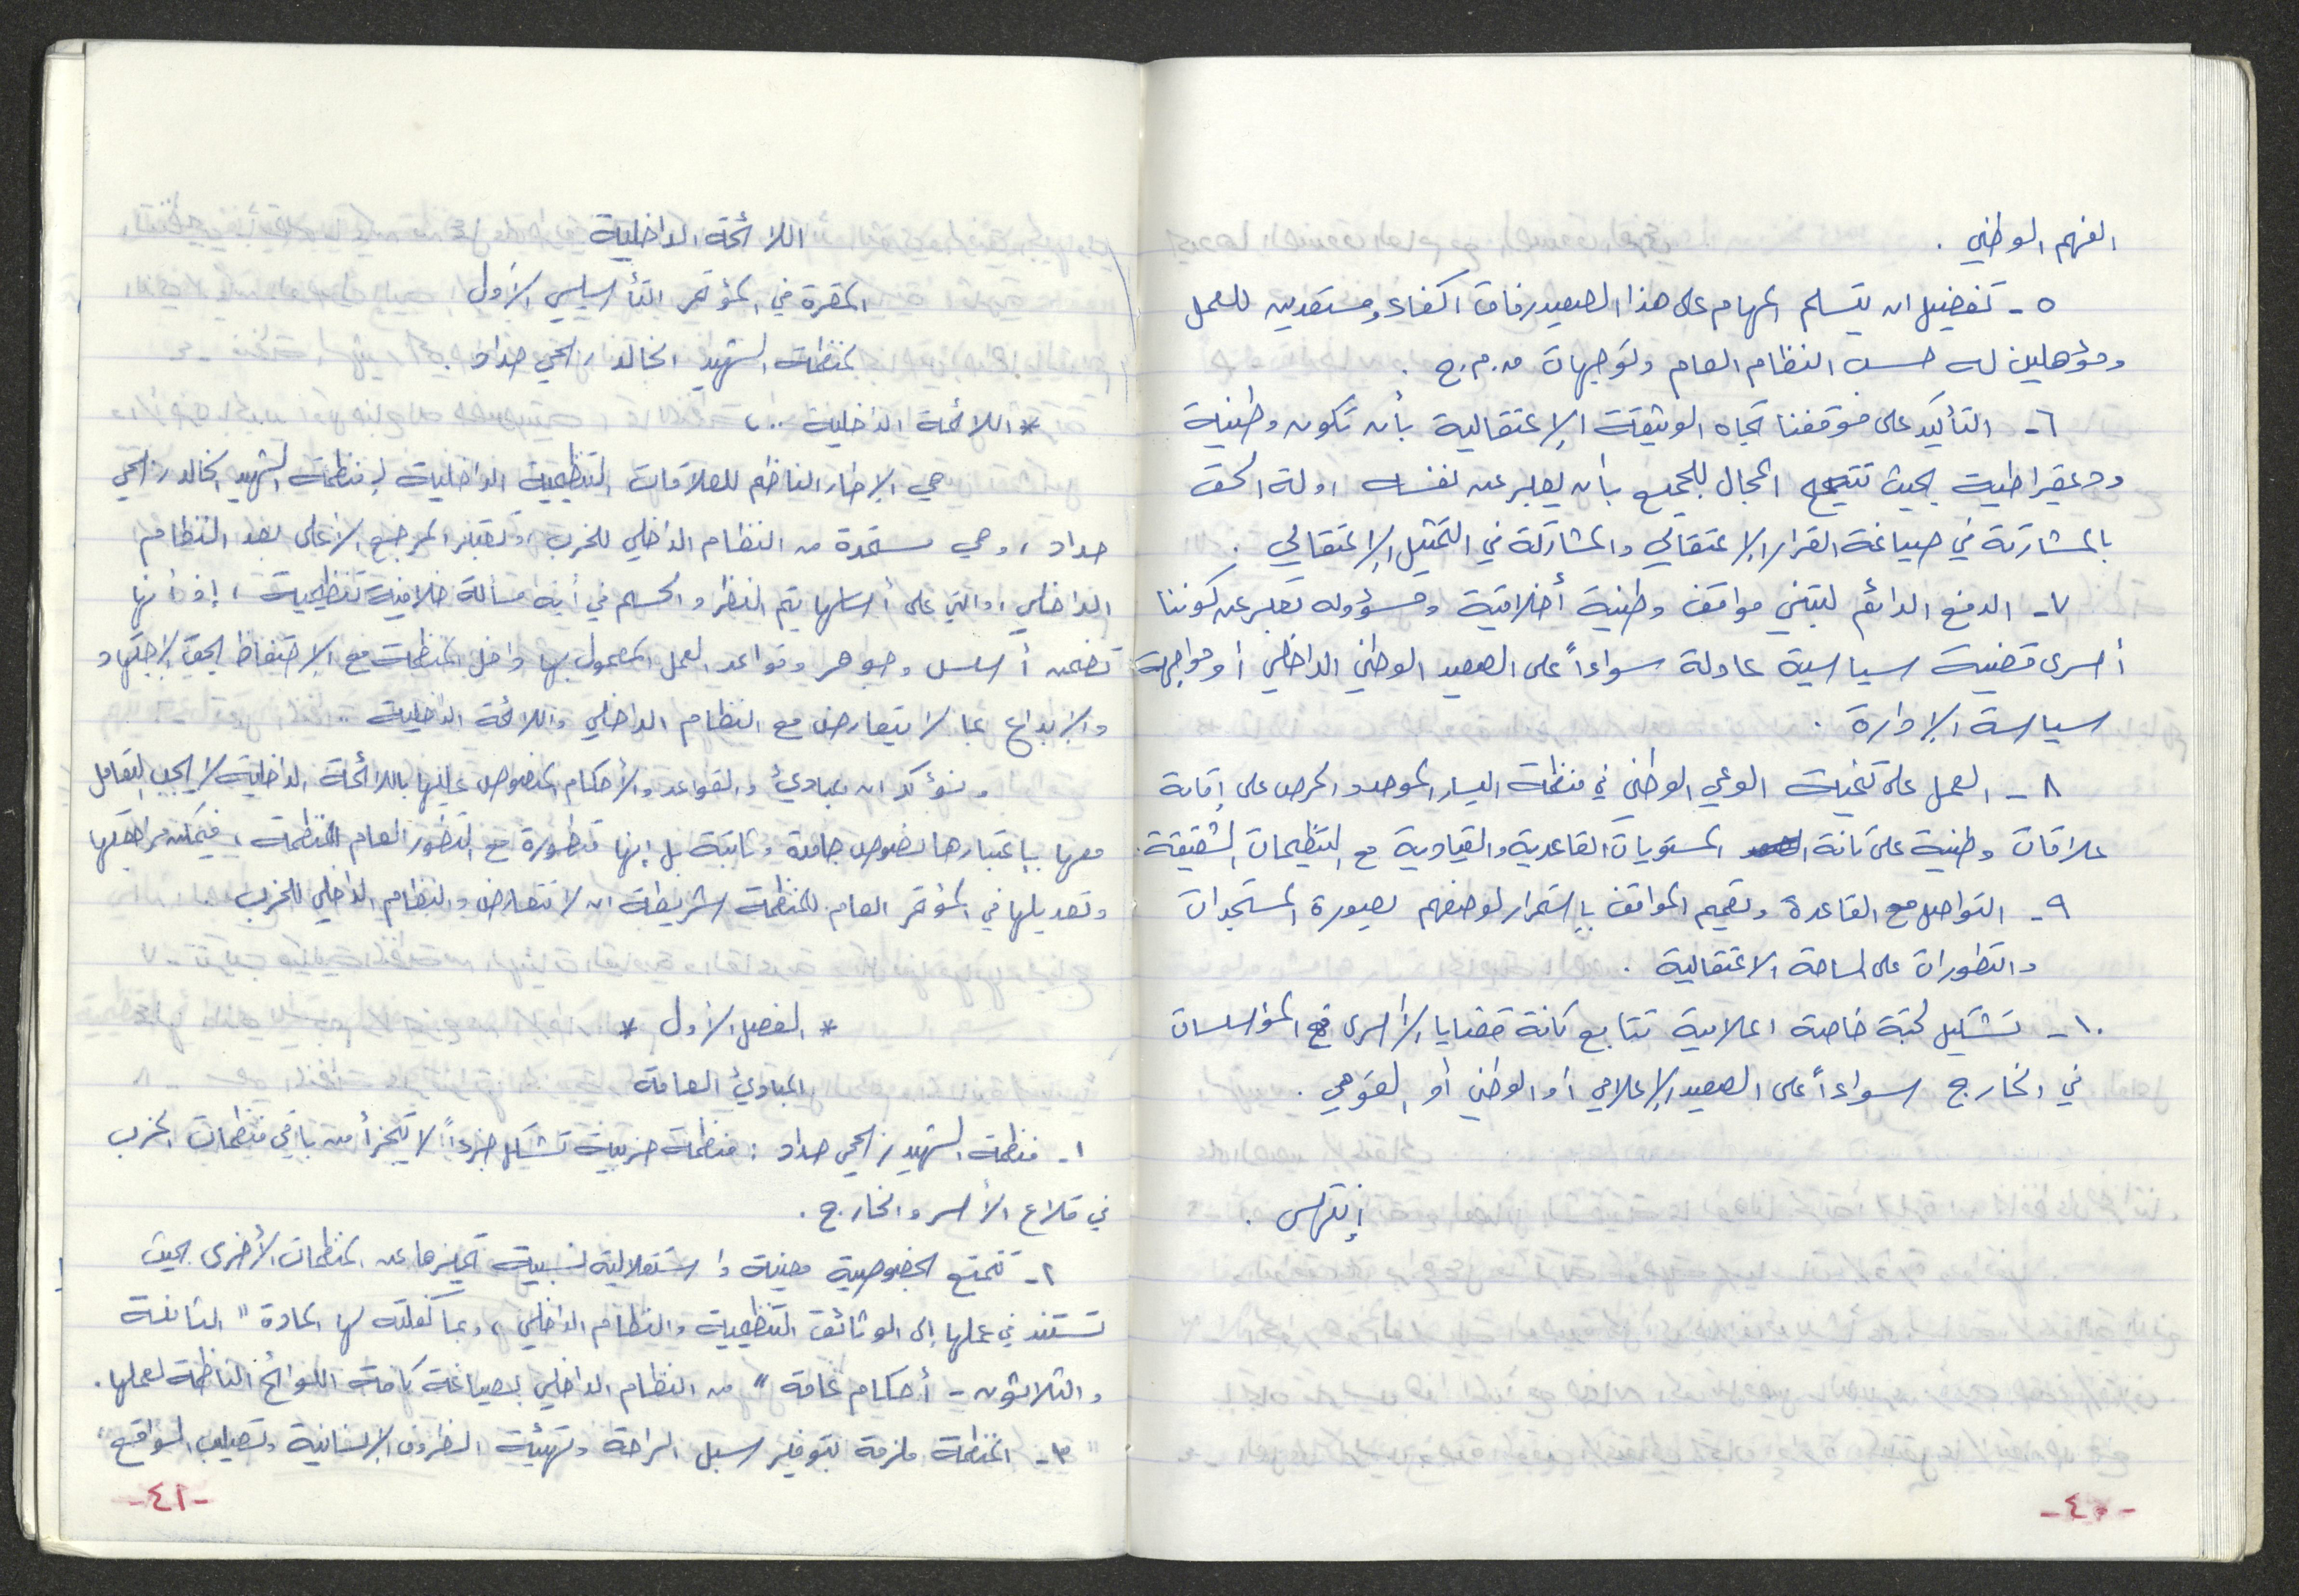 الفهم الوطني .
٥- تفضيل ان يتسلم المهام على هذا الصعيد رفاق اكفاء ومستعدين للعمل
ومؤهلين له حسب النظام العام وتوجيهات م.م.ح .
٦- التأكيد على موقفنا تجاه الوثيقة الإعتقالية بأن تكون وطنية
وديمقراطية بحيث تتيح المجال للجميع بأن يعبر عن نفسه اوله الحق
بالمشاركة في صياغة القرار الإعتقالي والمشاركة في التمثيل الإعتقالي .
٧- الدفع الدائم لتبني مواقف وطنية أخلاقية ومسؤوله تعبر عن كوننا
أسرى قضية سياسية عادلة سواءاً على الصعيد الوطني الداخلي أو مواجهة
سياسة الإدارة .
٨- العمل على تنمية الوعي الوطني في منظمة اليسار الموحد والحرص على إقامة
علاقات وطنية على كافة المستويات القاعدية والقيادية مع التنظيمات الشقيقة.
٩- التواصل مع القاعدة وتعميم المواقف بإستمرار لوضعهم بصورة المستجدات
والتطورات على الساحة الاعتقالية .
١٠- تشكيل لجنة خاصة اعلامية تتابع كافة قضايا الأسرى مع المؤسسات
في الخارج سواءاً على الصعيد الإعلامي أو الوطني أو القومي .
إنتهى .
-٤٠-
اللائحة الداخلية
المقرة في المؤتمر التأسيسي الأول
لمنظمة الشهيد الخالد ربحي حداد .
* اللائحة الداخلية ..
هي الإطار الناظم للعلاقات التنظيمية الداخلية لمنظمة الشهيد الخالد ربحي
حداد ، وهي مستمدة من النظام الداخلي للحزب ، وتعتبر المرجع الأعلى بعد النظام
الداخلي ، والتي على أساسها يتم النظر والحسم في أية مسألة خلافية تنظيمية ، إذ أنها
تضمن أسس وجوهر وقواعد العمل المعمول بها داخل المنظمة مع الإحتفاظ بحق الإجتهاد
والإبداع بما لا يتعارض مع النظام الداخلي واللائحة الداخلية ..
ونؤكد ان مبادئ والقواعد والأحكام المنصوص عليها باللائحة الداخلية لا يجب التعامل
معها بإعتبارها نصوص جامدة وثابتة بل إنها متطورة مع التطور العام للمنظمة ، فيمكن مراجعتها
وتعديلها في المؤتمر العام للمنظمة شريطة ان لا تتعارض والنظام الداخلي للحزب .
* الفصل الأول *
المبادئ العامة
١- منظمة الشهيد ربحي حداد : منظمة حزبية تشكل جزءاً لا يتجزأ من باقي منظمات الحزب
في قلاع الأسر والخارج .
٢- تتمتع بخصوصية معينة واستقلالية نسبية تميزها عن المنظمات الأخرى بحيث
تستند في عملها إلى الوثائق التنظيمية والنظام الداخلي ، وبما كفلته لها المادة " الثامنة
والثلاثون - أحكام عامة " من النظام الداخلي بصياغة كافة اللوائح الناظمة لعملها .
" ٣- المنظمة ملزمة بتوفير سبل الراحة وتهيئة الظروف الإنسانية وتصليب المواقع "
-٤١-